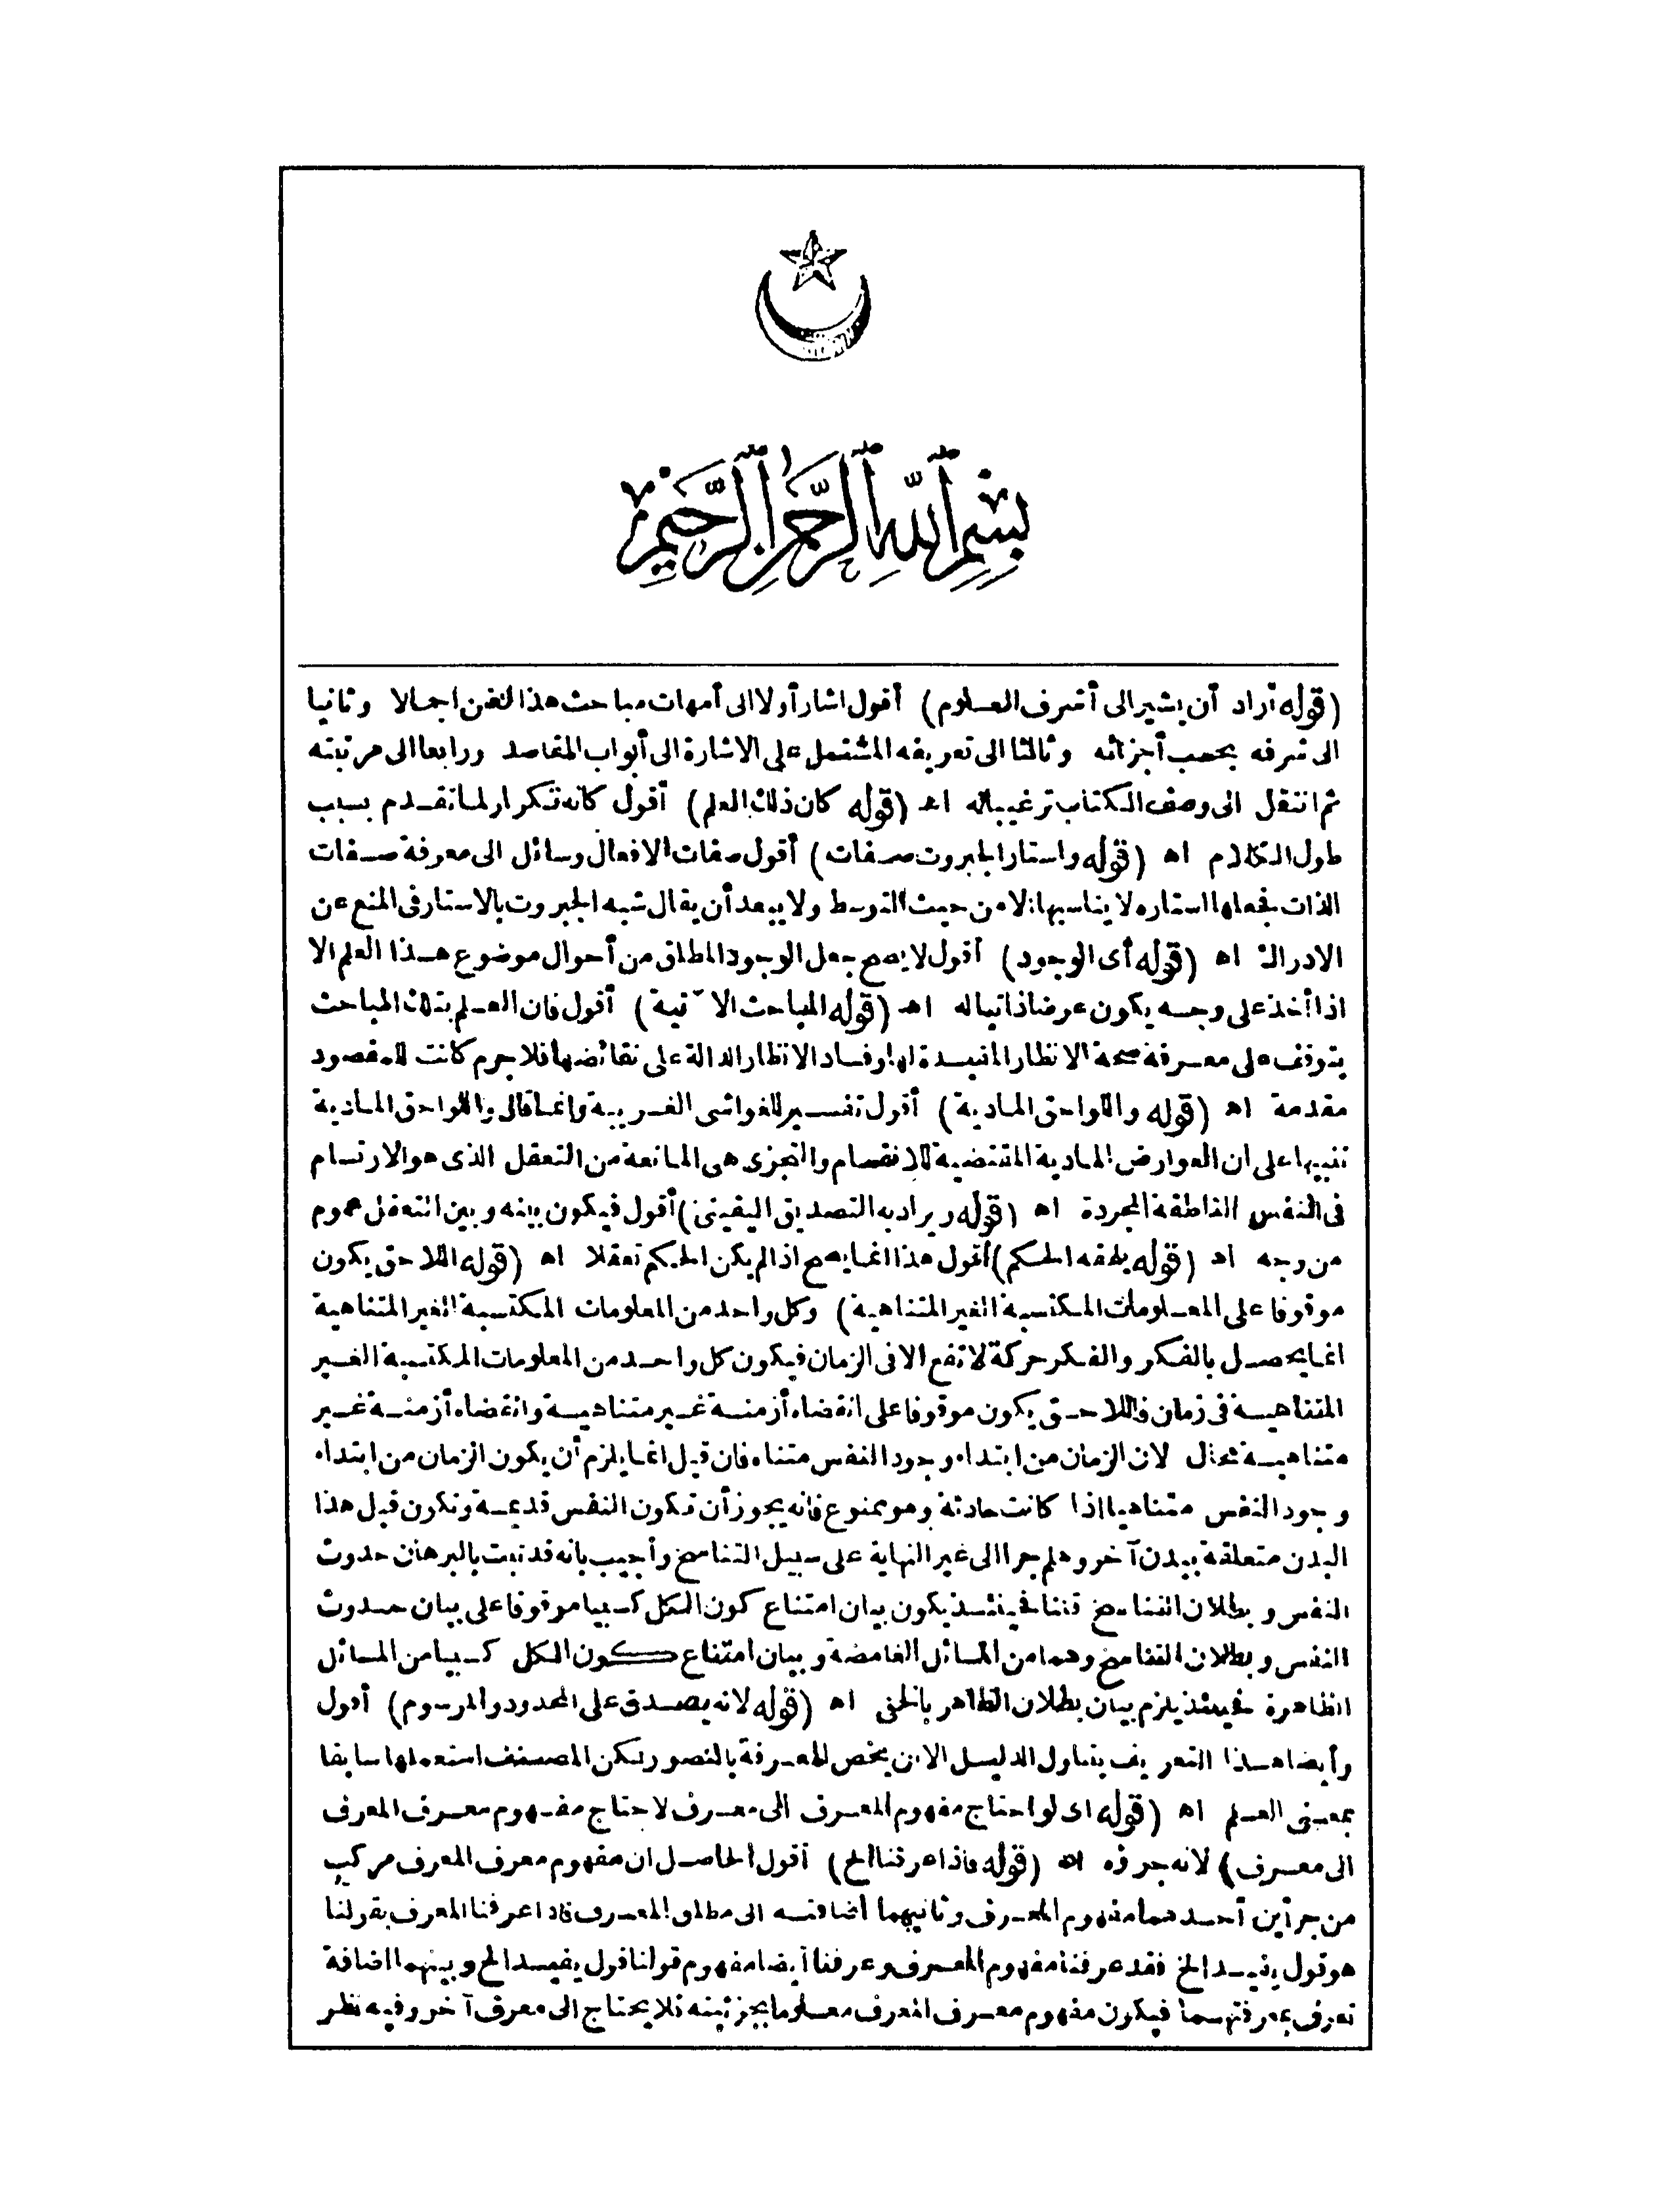 بِسْمِ ٱللَّهِ ٱلرَّحْمَٰنِ ٱلرَّحِيمِ
(قوله أراد أن يشير الى أشرف العلوم) أقول اشار أولا الى أمهات مباحث هذا الفن اجمالا وثانيا
الى شرفه بحسب أجزائه وثالثا الى تعريفه المشتمل على الاشارة الى أبواب المقاصد ورابعا الى مرتبته
ثم انتقل الى وصف الكتاب ترغيبا له اه (قوله كان ذلك العلم) أقول كانه تكرار لما تقدم بسبب
طول الكلام اه (قوله واستار الجبروت صفات) أقول صفات الافعال وسائل الى معرفة صفات
الذات فجعلها استاره لا يناسبها الا من حيث التوسط ولا يبعد أن يقال شبه الجبروت بالاستار فى المنع عن
الادراك اه (قوله أى الوجود) أقول لا يصح جعل الوجود المطلق من أحوال موضوع هذا العلم الا
اذا أخذ على وجه يكون عرضا ذاتيا له اه (قوله المباحث الآتية) أقول فان العلم بتلك المباحث
يتوقف على معرفة صحة الانظار المفيدة لها وفساد الانظار الدالة على نقائضها فلا جرم كانت للمقصود
مقدمة اه (قوله واللواحق المادية) أقول تفسير للغواشى الغريبة وانما قال واللواحق المادية
تنبيها على ان العوارض المادية المقتضية للانقسام والتجزى هى المانعة من التعقل الذى هو الارتسام
فى النفس الناطقة المجردة اه (قوله ويراد به التصديق اليقينى) أقول فيكون بينه وبين التعقل عموم
من وجه اه (قوله يلحقه الحكم) أقول هذا انما يصح اذا لم يكن الحكم تعقلا اه (قوله اللاحق يكون
موقوفا على المعلومات المكتسبة الغير المتناهية) وكل واحد من المعلومات المكتسبة الغير المتناهية
انما يحصل بالفكر والفكر حركة لا تقع الا فى الزمان فيكون كل واحد من المعلومات المكتسبة الغير
المتناهية فى زمان فاللاحق يكون موقوفا على انقضاء أزمنة غير متناهية وانقضاء أزمنة غير
متناهية محال لان الزمان من ابتداء وجود النفس متناه فان قيل انما يلزم أن يكون الزمان من ابتداء
وجود النفس متناهيا اذا كانت حادثة وهو ممنوع فانه يجوز أن تكون النفس قديمة وتكون قبل هذا
البدن متعلقة ببدن آخر وهلم جرا الى غير النهاية على سبيل التناسخ وأجيب بانه قد ثبت بالبرهان حدوث
النفس وبطلان التناسخ قلنا فحينئذ يكون بيان امتناع كون الكل كسبيا موقوفا على بيان حدوث
النفس وبطلان التناسخ وهما من المسائل الغامضة وبيان امتناع كون الكل كسبيا من المسائل
الظاهرة فحينئذ يلزم بيان بطلان الظاهر بالخفى اه (قوله لانه يصدق على المحدود والمرسوم) أقول
وأيضا هذا التعريف يتناول الدليل الا ان يخص المعرفة بالتصور لكن المصنف استعملها سابقا
بمعنى العلم اه (قوله اى لو احتاج مفهوم المعرف الى معرف لاحتاج مفهوم معرف المعرف
الى معرف) لانه جزؤه اه (قوله فاذا عرفنا الخ) أقول الحاصل ان مفهوم معرف المعرف مركب
من جزأين أحدهما مفهوم المعرف وثانيهما اضافته الى مطلق المعرف فاذا عرفنا المعرف بقولنا
هو قول يفيد الخ فقد عرفنا مفهوم المعرف وعرفنا أيضا مفهوم قولنا قول يفيد الخ وبينهما اضافة
تعرف بمعرفتهما فيكون مفهوم معرف المعرف معلوما بجزئيته فلا يحتاج الى معرف آخر وفيه نظر